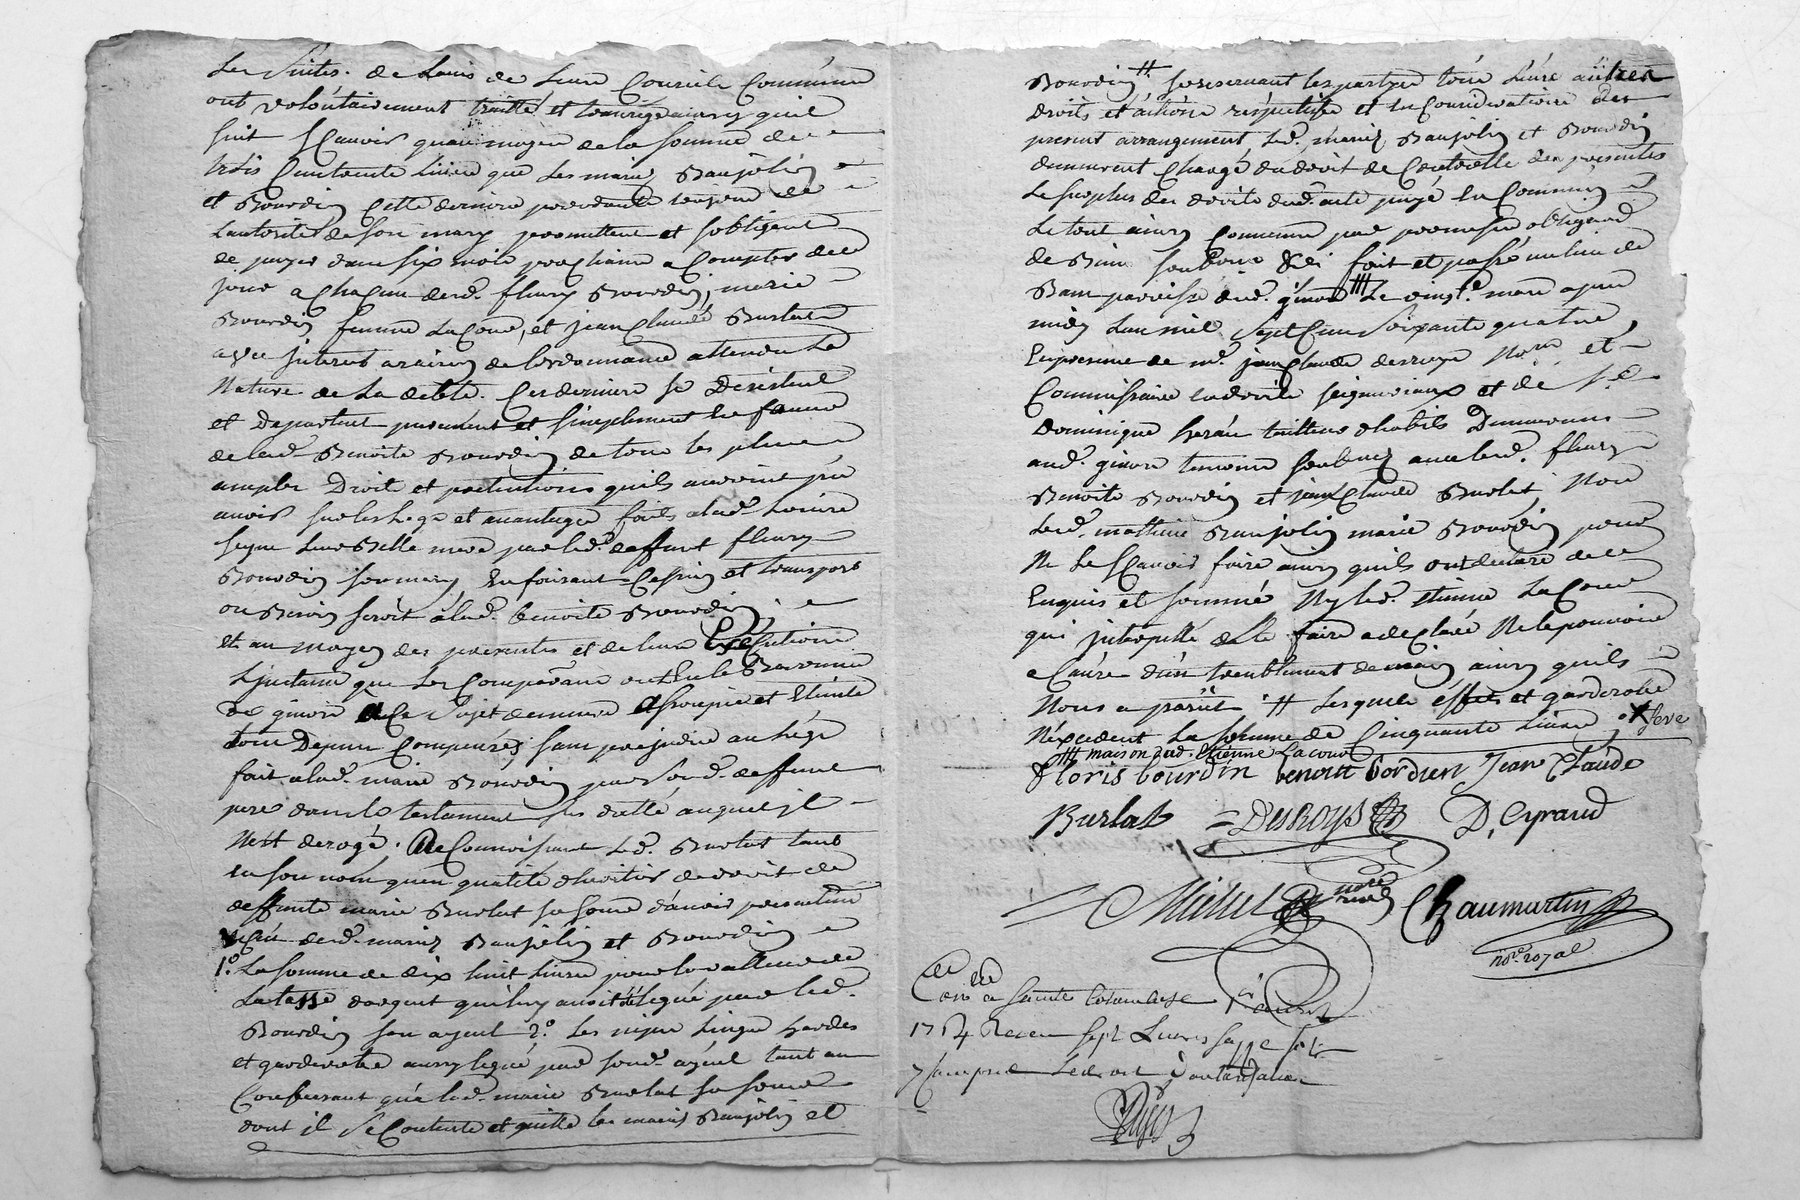 de Lavis de Leur Conseil Commune
ont volontairement traitté et transigé ainsy quil
suit Scavoir quau moyen de la somme de
trois Cent trente livres que Les mariés Baujolin
et Bourdin Cette derniere procedante toujour de
Lautorité de son mary promettent et sobligent
de payer dans six mois prochains a Compter de ce
jour a Chacun desd. fleury Bourdin, marie
Bourdin femme Lacour, et jean Claude Burlat
avec jnterest a raison de lordonnance attendu La
Nature de La debte. Ces derniers se Desistent
et Departent purement et simplement En faveur
de lad. Benoite Bourdin de tous les plus
amples Droits et pretentions quils auroient pu
avoir sur les Legs et avantages faits a lad. Louise
seyve Leur Belle mere par led. deffunt fleury
Bourdin son mary, En faisant Cession et transport
ou Besoin seroit a lad. Benoite Bourdin
et au moyen des presentes et de leur Execution
Ljnstance que Les Comparans ont En la Baronnie
de givors a Ce Sujet demeure assoupie et Eteinte
tous Depens Compensés, sans prejudice au Legs
fait a lad. marie Bourdin par sond. deffunt
pere dans le testament sus datté auquel jl
Nest derogé. Reconnoissant Led. Burlat tant
en son nom quen qualité dheritier de droit de
deffunte marie Burlat sa soeur davoir presentement
Reçu desd. mariés Baujolin et Bourdin
1°. La somme de dix huit livres pour la valleur de
La tasse dargent quil luy avoit été legué par led.
Bourdin son ayeul 2°. Les nipes Linges hardes
et garderobe aussy legué par sond. ayeul tant au
Confessant qua lad. marie Burlat sa soeur
dont jl se Contente et quitte les mariés Baujolin et
Bourdin # se reservant les parties tous Leurs autres
droits et actions respectifs et En Consideration du
present arrangement, Led. mariés Baujolin et Bourdin
demeurent Chargé du droit de Controlle des presentes
Le surplus des droits dud. acte payé En Commun
Le tout ainsy Convenu par promesse obligation
de Biens fait et passé au lieu de
Bans paroisse dud. givors ### Le vingt. mars apres
midy Lan mil Sept Cent Soixante quatre,
En presence de m.e jean Claude desroys No.re et
Commissaire En droits seigneuriaux et de s.r
Dominique tailleur dhabits Demeurans
aud. givors temoins soubsignés avec led. fleury
Benoite Bourdin et jean Claude Burlat, Non
Led. mathieu Baujolin marie Bourdin pour
Ne Le Scavoir faire ainsy quils ont declaré de ce
Enquis et sommé Ny led. etienne La Cour
qui jnterpellé de le faire a declaré Ne le pouvoir
a Cause dun tremblement de main ainsy quils
Nous a parut. # Lesquels effets et garderobe
Nexcedent La somme de Cinquante livres,
### maison dud. Etienne Lacour
floris bourdin benoitte bordien Jean Claude
Burlat DesRoys D, Eyraud
Michel no.re Chaumartin
no.re royal
a Sainte Colombe
1764 Receu sept Livres
y Compris Le